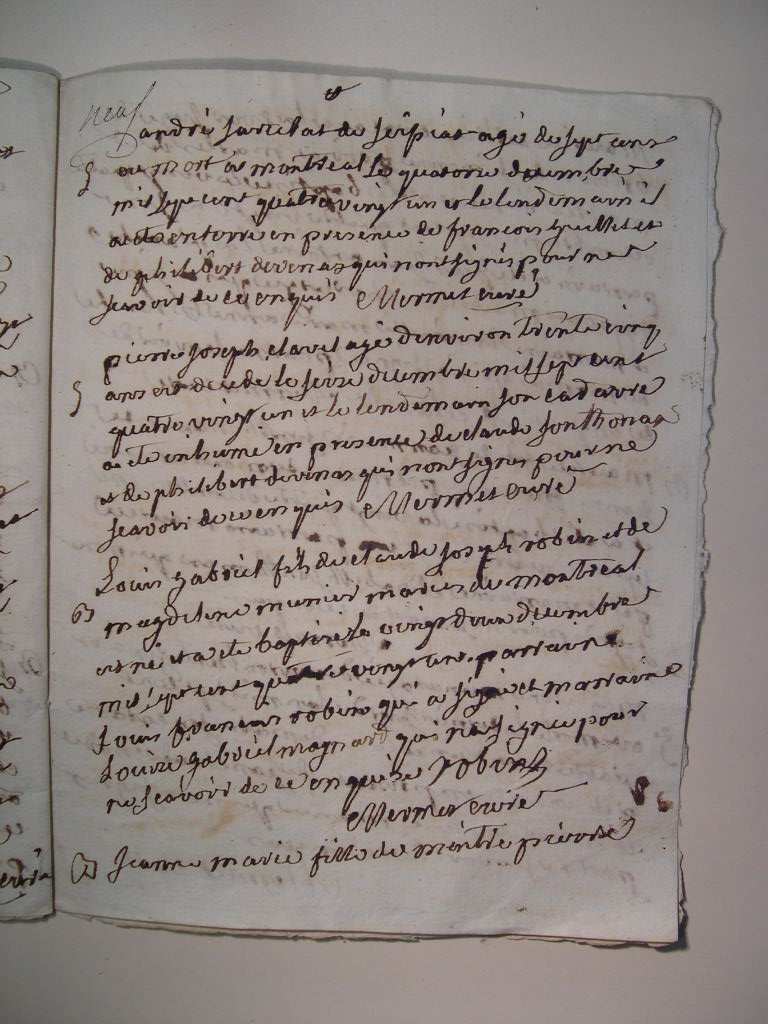 neuf
S
andré Sarcelat de Serpiat agé de sept ans
est mort a montreal le quatorze decembre
mil sept cent quatre vingt un et le lendemain il
a ete enterré en presence de francois Guillet et
de philibert devenas qui nont signés pour ne
scavoir de ce enquis Mermet curé
S
pierre Joseph clavel agé denviron trente cinq
ans est decede le seize decembre mil sept cent
quatre vingt un et le lendemain son cadavre
a ete inhumé en presence de claude
et de philibert devenas qui nont signes pour ne
scavoir de ce enquis Mermet curé
B
Louis gabriel fils de claude Joseph robin et de
magdelene munier mariés de montreal
est né et a ete baptise le vingt deux decembre
mil sept cent quatre vingt un. parrain
Louis francois robin qui a signé et marraine
Louise gabriel magnard qui na signée pour
ne scavoir de ce enquise robin
Mermet curé
B
Jeanne marie fille de pierre